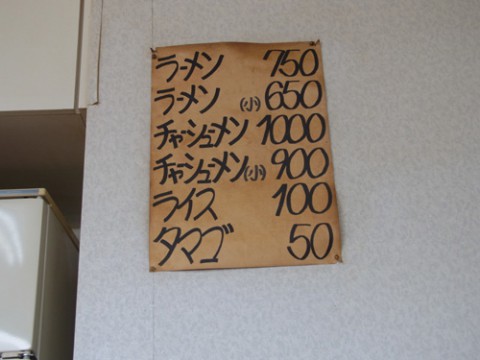 ラーメン 750
ラーメン (小) 650
チャーシューメン 1000
チャーシューメン (小) 900
ライス 100
タマゴ 50